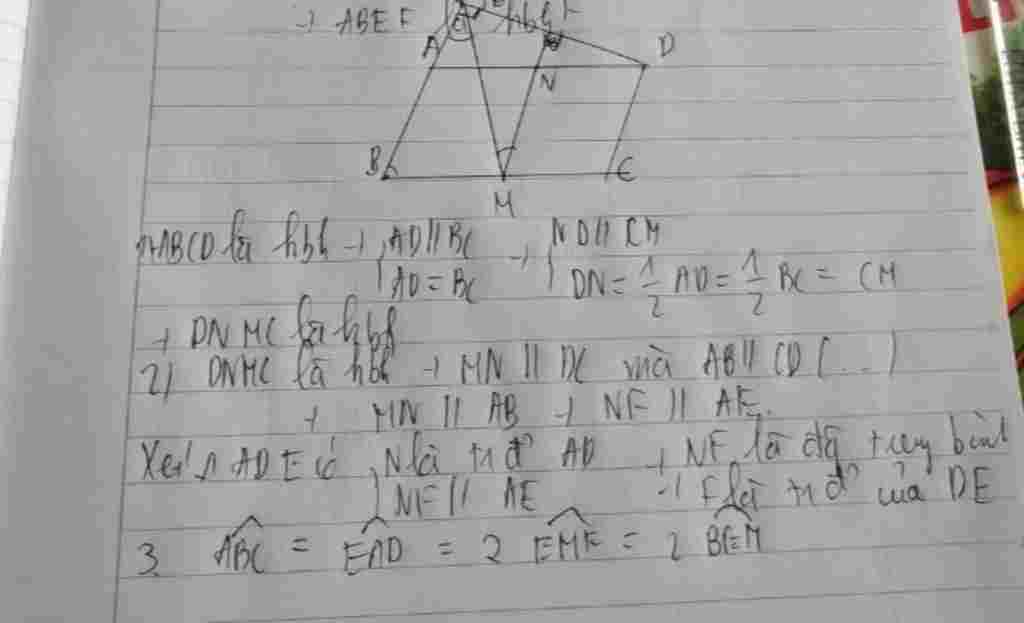 → ABEF hbh
A
D
N
B
M
C
1) ABCD là hbh → { AD // BC → { ND // CM
AD = BC DN = 1/2 AD = 1/2 BC = CM
→ DNMC là hbh
2) DNMC là hbh → MN // DC mà AB // CD (...)
→ MN // AB → NF // AE.
Xét Δ ADE có { N là tr đ AD → NF là đg trung bình
NF // AE → F là tr đ của DE
3. ABC = EAD = 2 EMF = 2 BEM